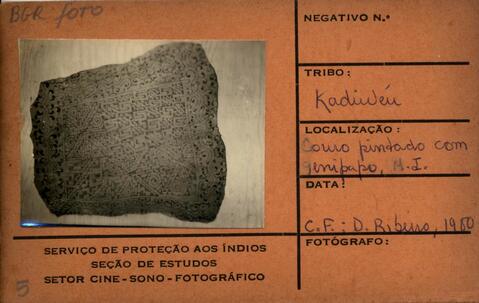 BGR foto
NEGATIVO N.º
TRIBO:
Kadiwéu
LOCALIZAÇÃO:
Couro pintado com
genipapo, M.I.
DATA:
C.F.: D. Ribeiro, 1980
FOTÓGRAFO:
SERVIÇO DE PROTEÇÃO AOS ÍNDIOS
SEÇÃO DE ESTUDOS
SETOR CINE-SONO-FOTOGRÁFICO
5